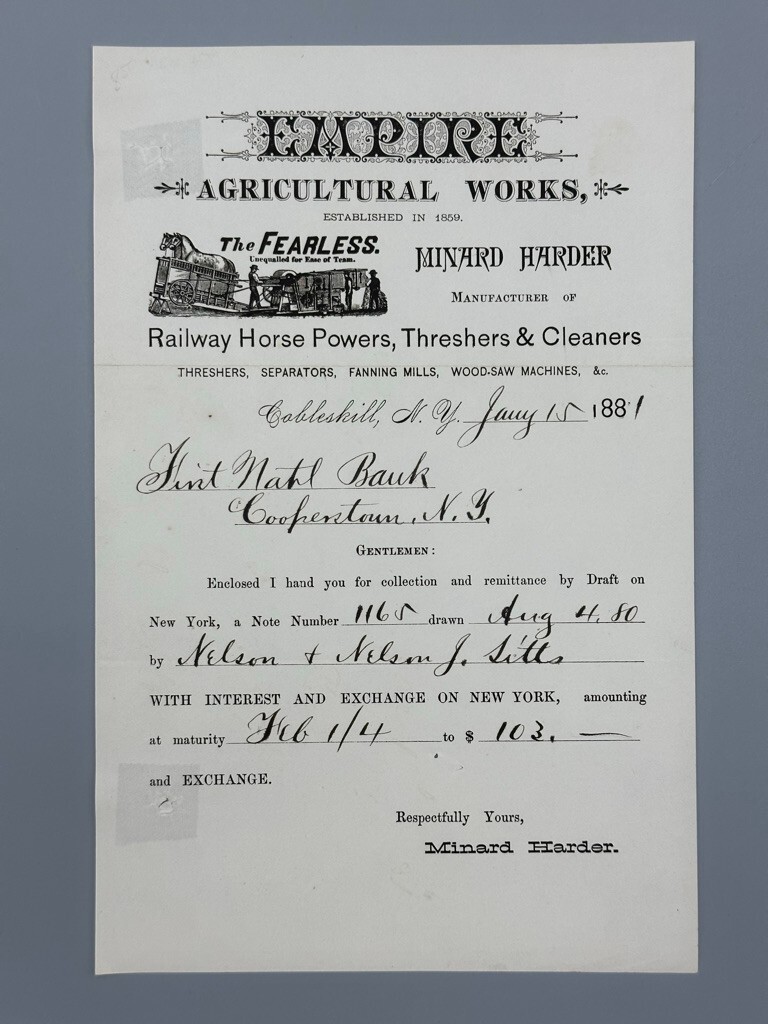 EMPIRE
AGRICULTURAL WORKS,
ESTABLISHED IN 1859.
The FEARLESS.
Unequalled for Ease of Team.
MINARD HARDER
MANUFACTURER OF
Railway Horse Powers, Threshers & Cleaners
THRESHERS, SEPARATORS, FANNING MILLS, WOOD-SAW MACHINES, &c.
Cobleskill, N. Y. Jany 15 1881
First Natl Bank
Cooperstown, N.Y.
GENTLEMEN:
Enclosed I hand you for collection and remittance by Draft on
New York, a Note Number 1165 drawn Aug 4. 80
by Nelson & Nelson J. Sitts
WITH INTEREST AND EXCHANGE ON NEW YORK, amounting
at maturity Feb 1/4 to $ 103. —
and EXCHANGE.
Respectfully Yours,
Minard Harder.